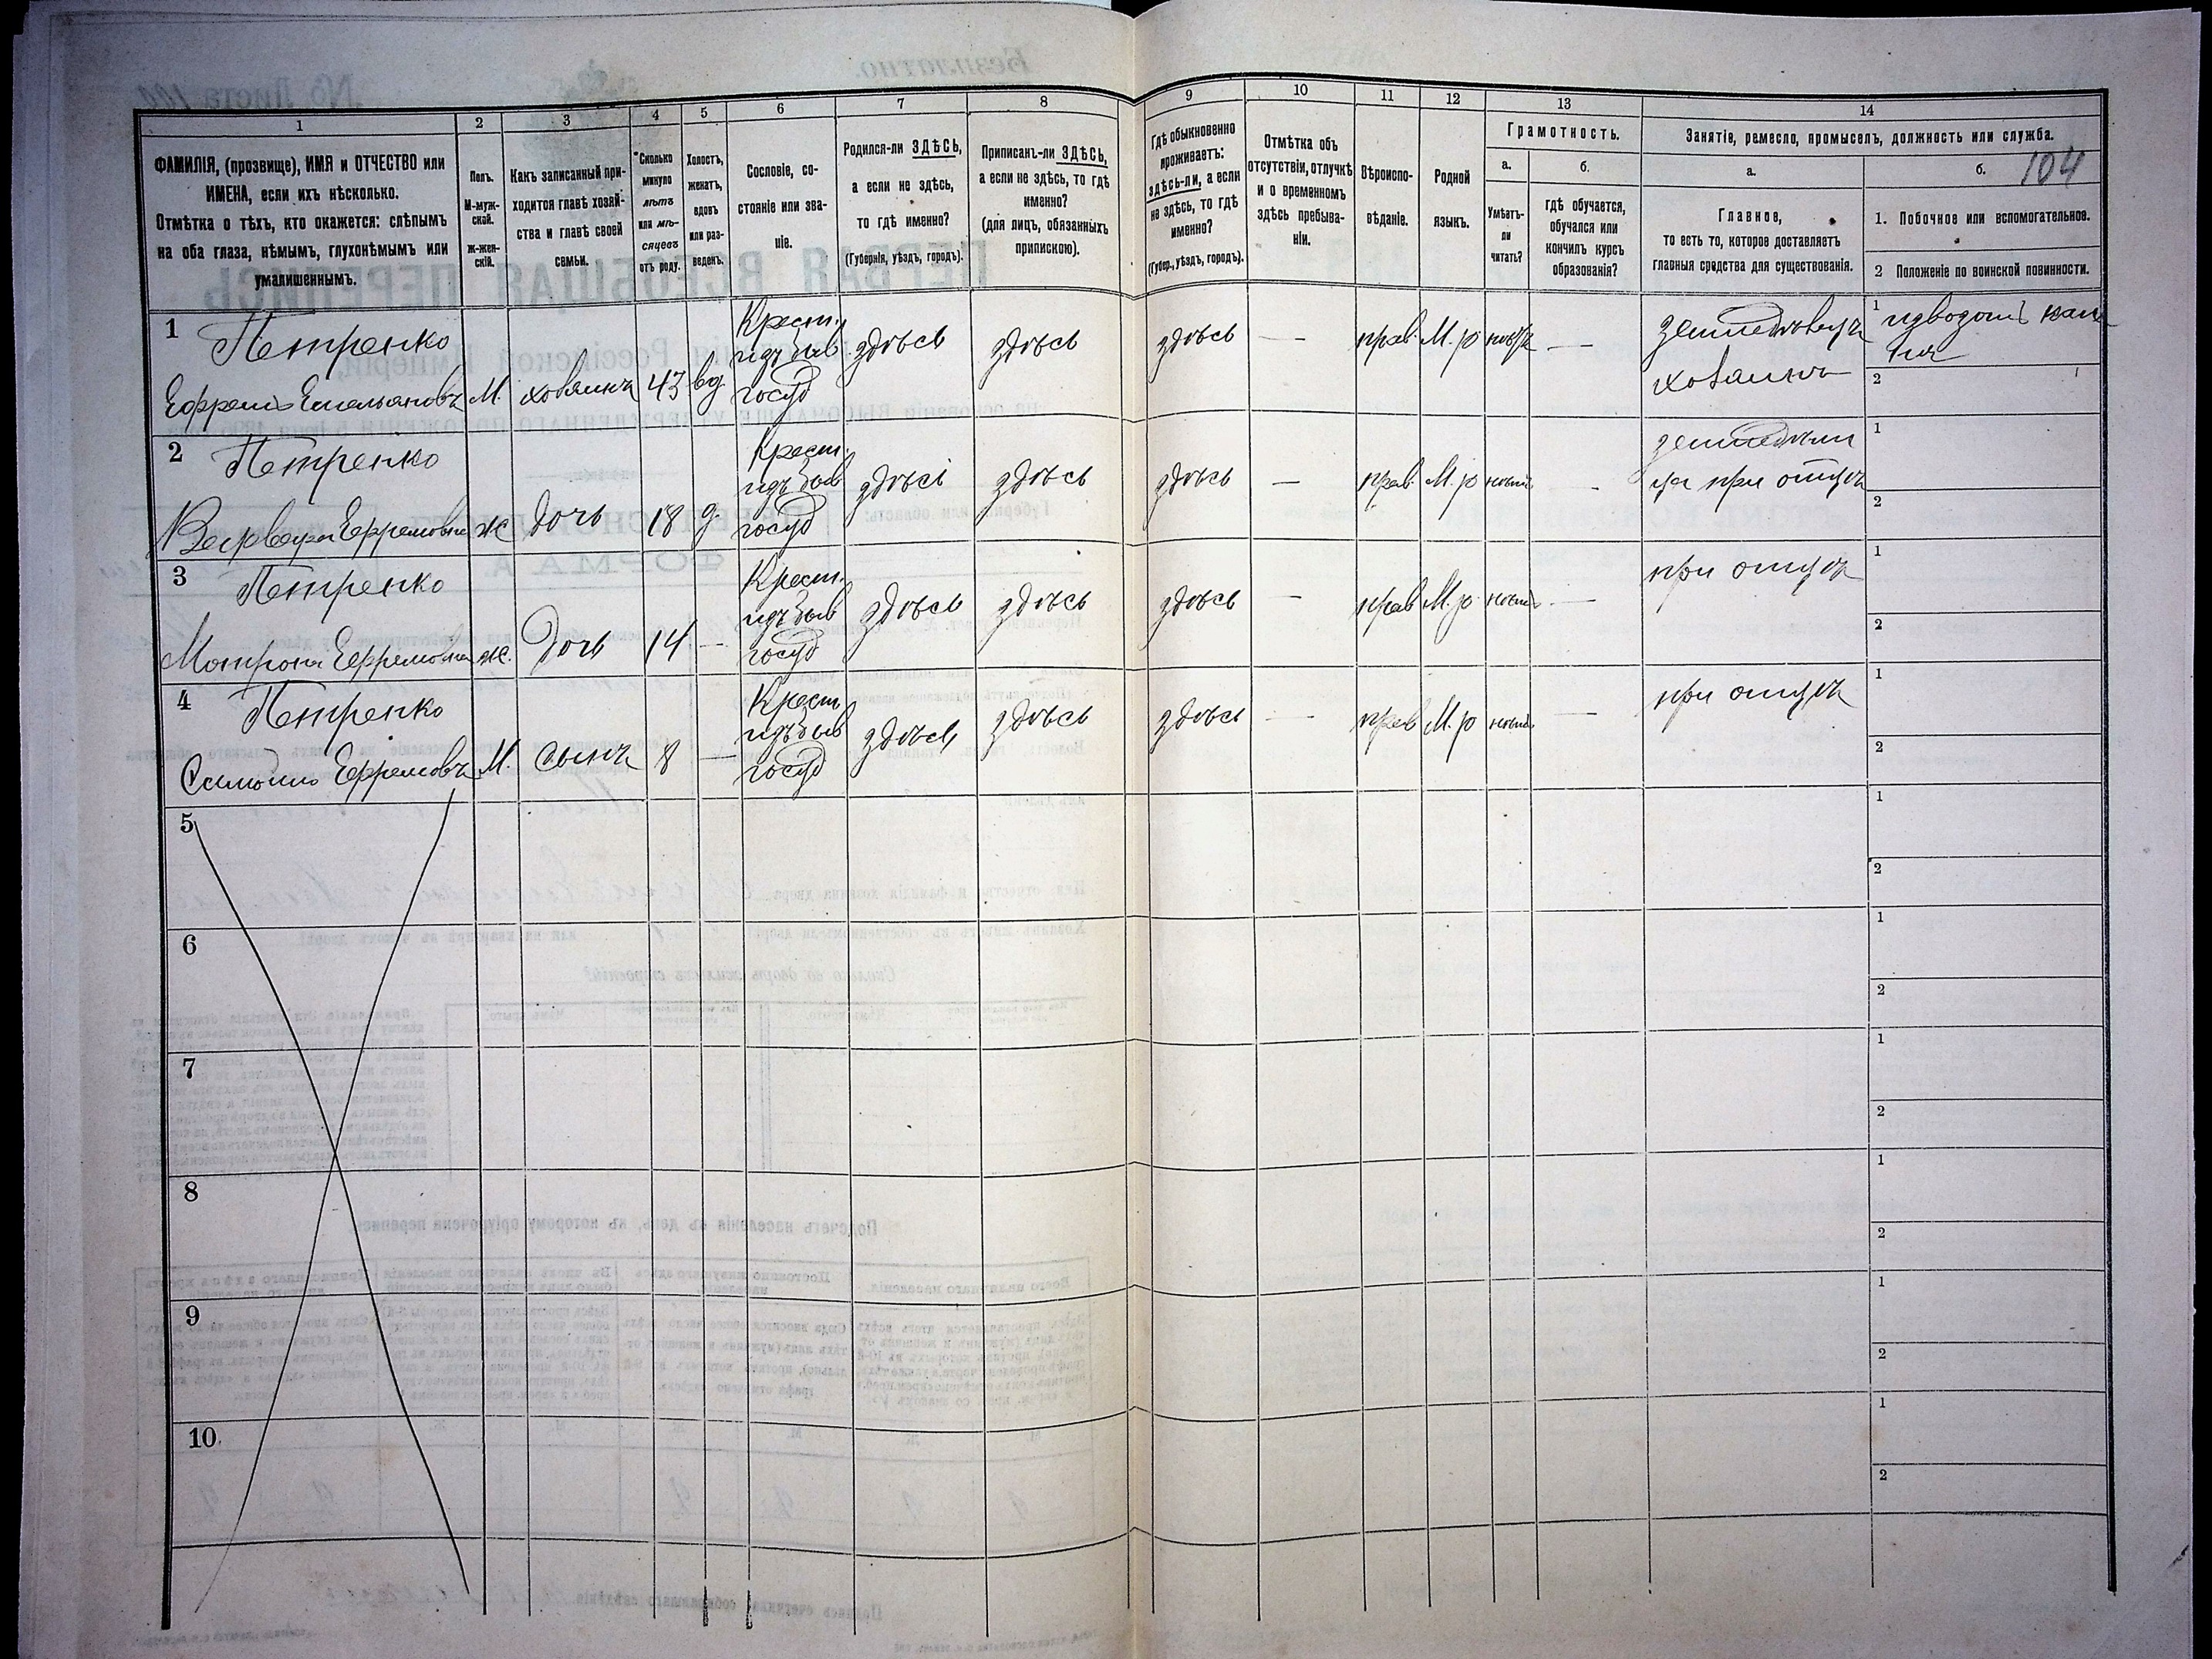 1 2 3 4 5 6 7 8 9 10 11 12 13 14
104
ФАМИЛІЯ, (прозвище), ИМЯ и ОТЧЕСТВО или
ИМЕНА, если ихъ нѣсколько.
Отмѣтка о тѣхъ, кто окажется: слѣпымъ
на оба глаза, нѣмымъ, глухонѣмымъ или
умалишеннымъ.
Полъ.
М-муж-
ской.
Ж-жен-
скій.
Какъ записанный при-
ходится главѣ хозяй-
ства и главѣ своей
семьи.
Сколько
минуло
лѣтъ
или мѣ-
сяцевъ
отъ роду.
Холостъ,
женатъ,
вдовъ
или раз-
веденъ.
Сословіе, со-
стояніе или зва-
ніе.
Родился-ли ЗДѢСЬ,
а если не здѣсь,
то гдѣ именно?
(Губернія, уѣздъ, городъ).
Приписанъ-ли ЗДѢСЬ,
а если не здѣсь, то гдѣ
именно?
(для лицъ, обязанныхъ
припискою).
Гдѣ обыкновенно
проживаетъ:
здѣсь-ли, а если
не здѣсь, то гдѣ
именно?
(Губер., уѣздъ, городъ).
Отмѣтка объ
отсутствіи, отлучкѣ
и о временномъ
здѣсь пребыва-
ніи.
Вѣроиспо-
вѣданіе.
Родной
языкъ.
Грамотность.
а.
Умѣетъ-
ли
читать?
б.
гдѣ обучается,
обучался или
кончилъ курсъ
образованія?
Занятіе, ремесло, промыселъ, должность или служба.
а.
Главное,
то есть то, которое доставляетъ
главныя средства для существованія.
б.
1. Побочное или вспомогательное.
2 Положеніе по воинской повинности.
1 Петренко
Ефремъ Емельяновъ М. хозяинъ 43 вд.
Крест.
изъ быв
госуд
здѣсь здѣсь здѣсь — прав. М. р — земледѣлецъ
хозяинъ
1
2
2 Петренко
Варвара Ефремовна ж дочь 18 д.
Крест.
изъ быв
госуд
здѣсь здѣсь здѣсь — прав. М. р - земледѣли
ца при отцѣ
1
2
3 Петренко
Матрона Ефремовна ж. Дочь 14 —
Крест.
изъ быв
госуд
здѣсь здѣсь здѣсь — прав М. р — при отцѣ
1
2
4 Петренко
Ефремовъ М. сынъ 8 —
Крест
изъ быв
госуд
здѣсь здѣсь здѣсь — прав М. р — при отцѣ
1
2
5
1
2
6
1
2
7
1
2
8
1
2
9
1
2
10.
1
2